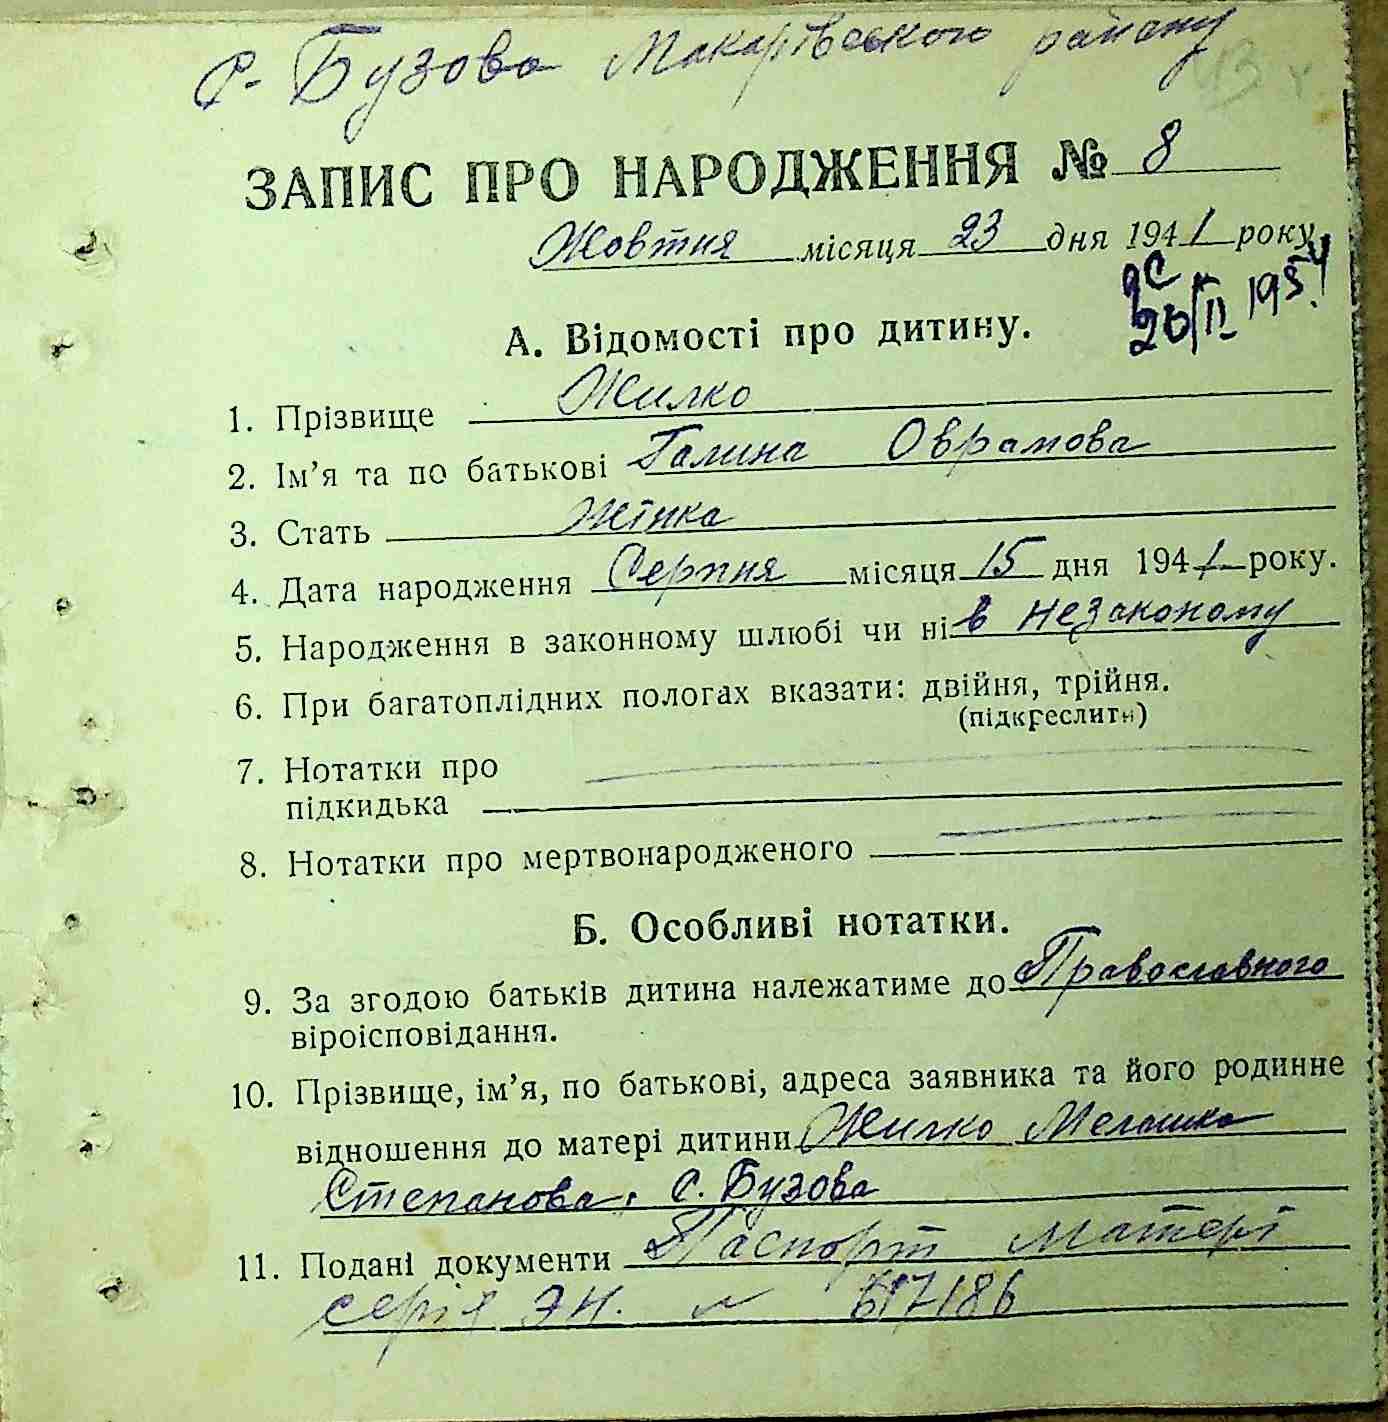 с. Бузова Макарівського району
ЗАПИС ПРО НАРОДЖЕННЯ № 8
Жовтня місяця 23 дня 1941 року
20/II 1954
А. Відомості про дитину.
1. Прізвище Жилко
2. Ім’я та по батькові Галина Оврамова
3. Стать жінка
4. Дата народження Серпня місяця 15 дня 1941 року.
5. Народження в законному шлюбі чи ні в незаконому
6. При багатоплідних пологах вказати: двійня, трійня.
(підкреслити)
7. Нотатки про
підкидька
8. Нотатки про мертвонародженого
Б. Особливі нотатки.
9. За згодою батьків дитина належатиме до Православного
віроісповідання.
10. Прізвище, ім’я, по батькові, адреса заявника та його родинне
відношення до матері дитини Жилко Мелашка
Степанова, с. Бузова
11. Подані документи Паспорт матері
серія ЭН. № 617186